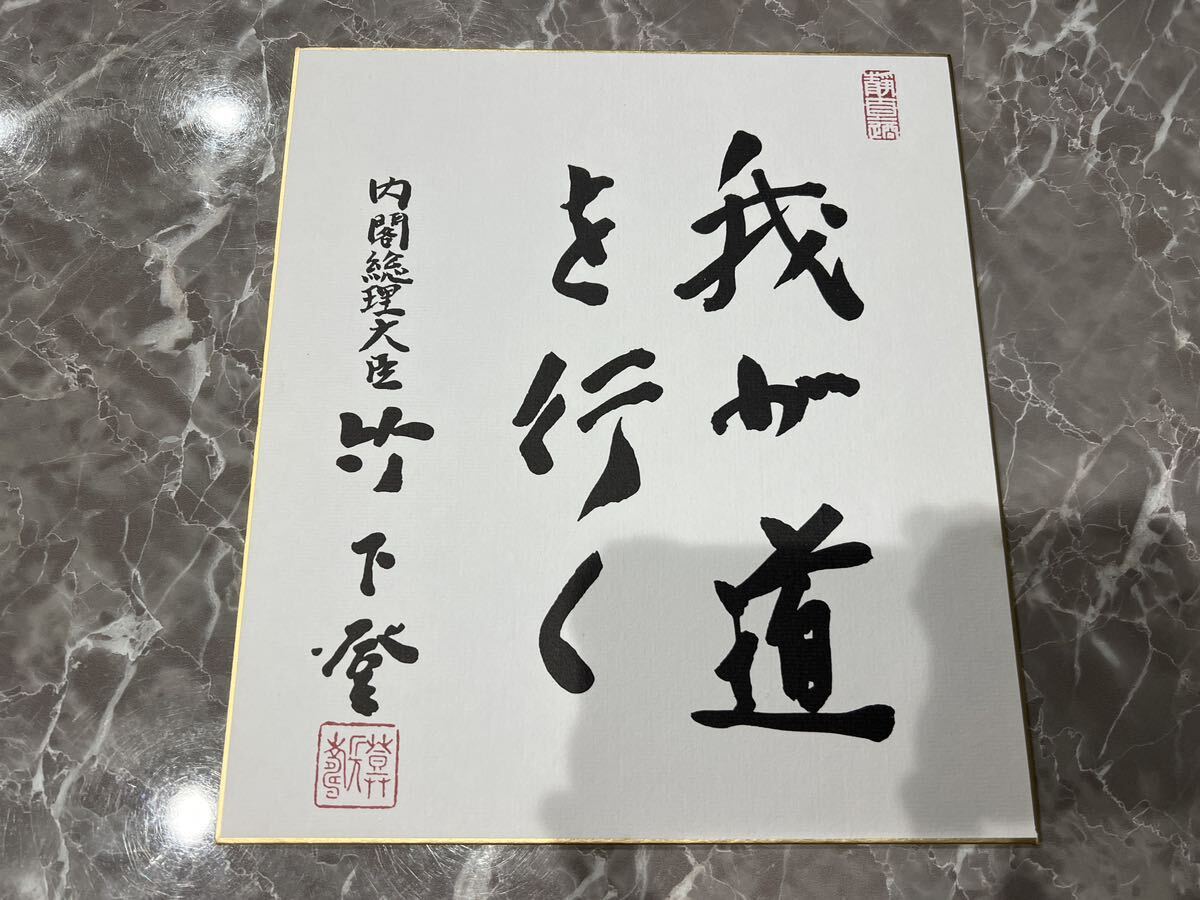 我が道
を行く
内閣総理大臣 竹下登